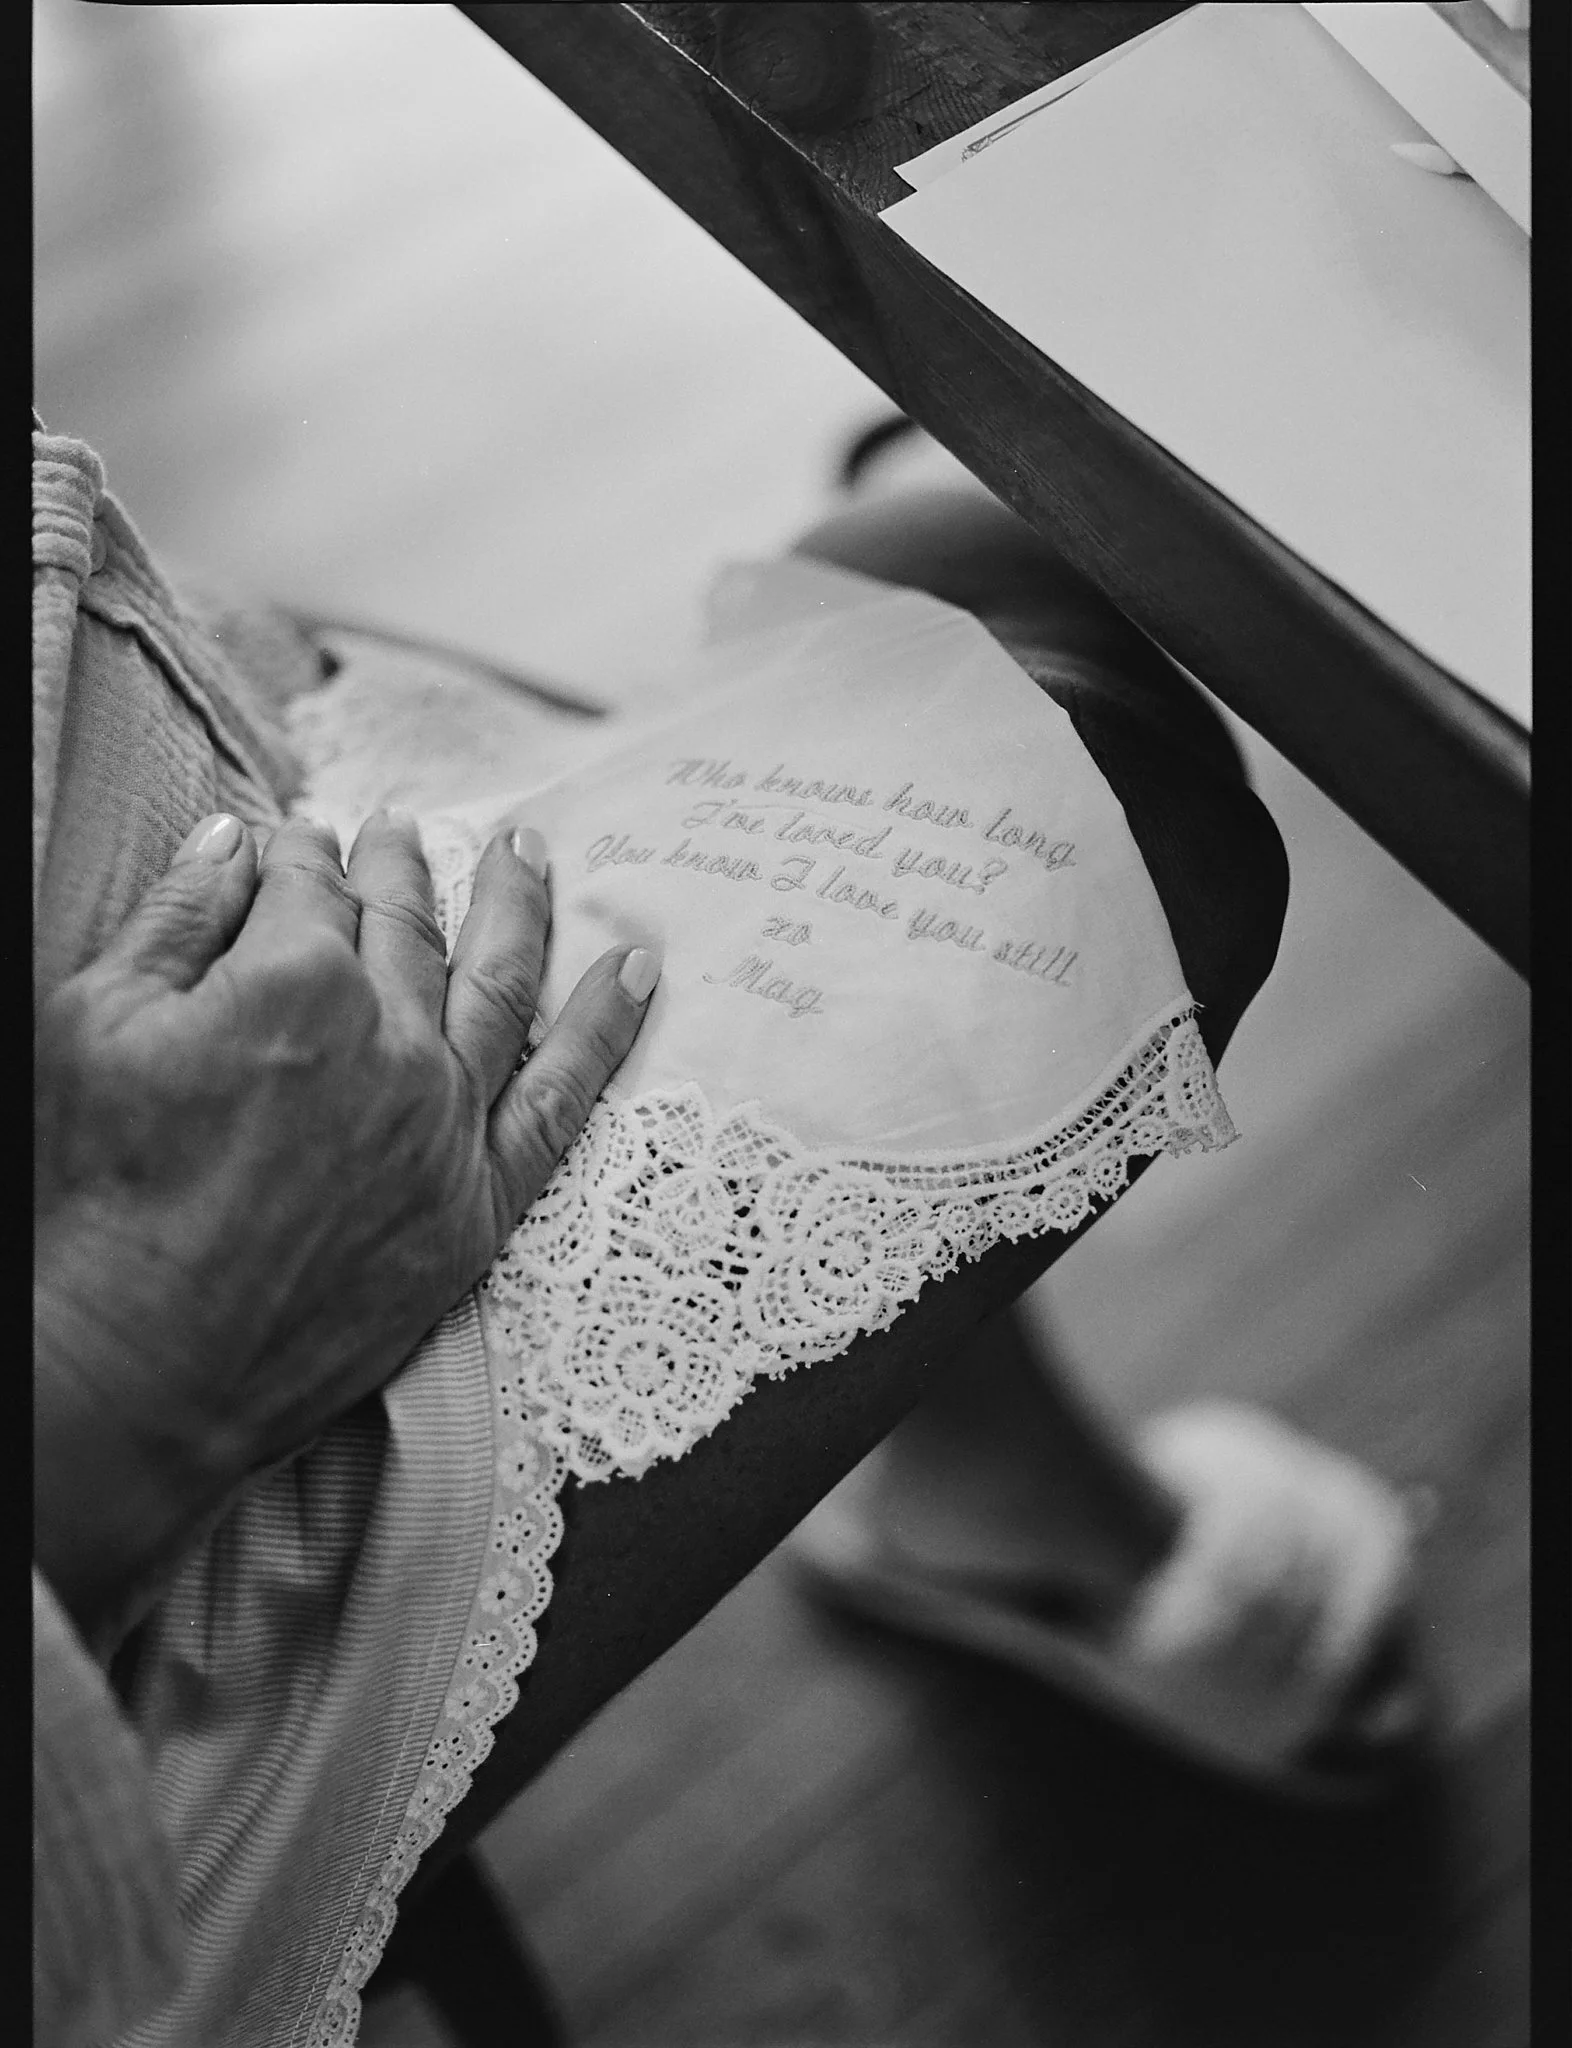 Who knows how long
I've loved you?
You know I love you still
xo
Mag